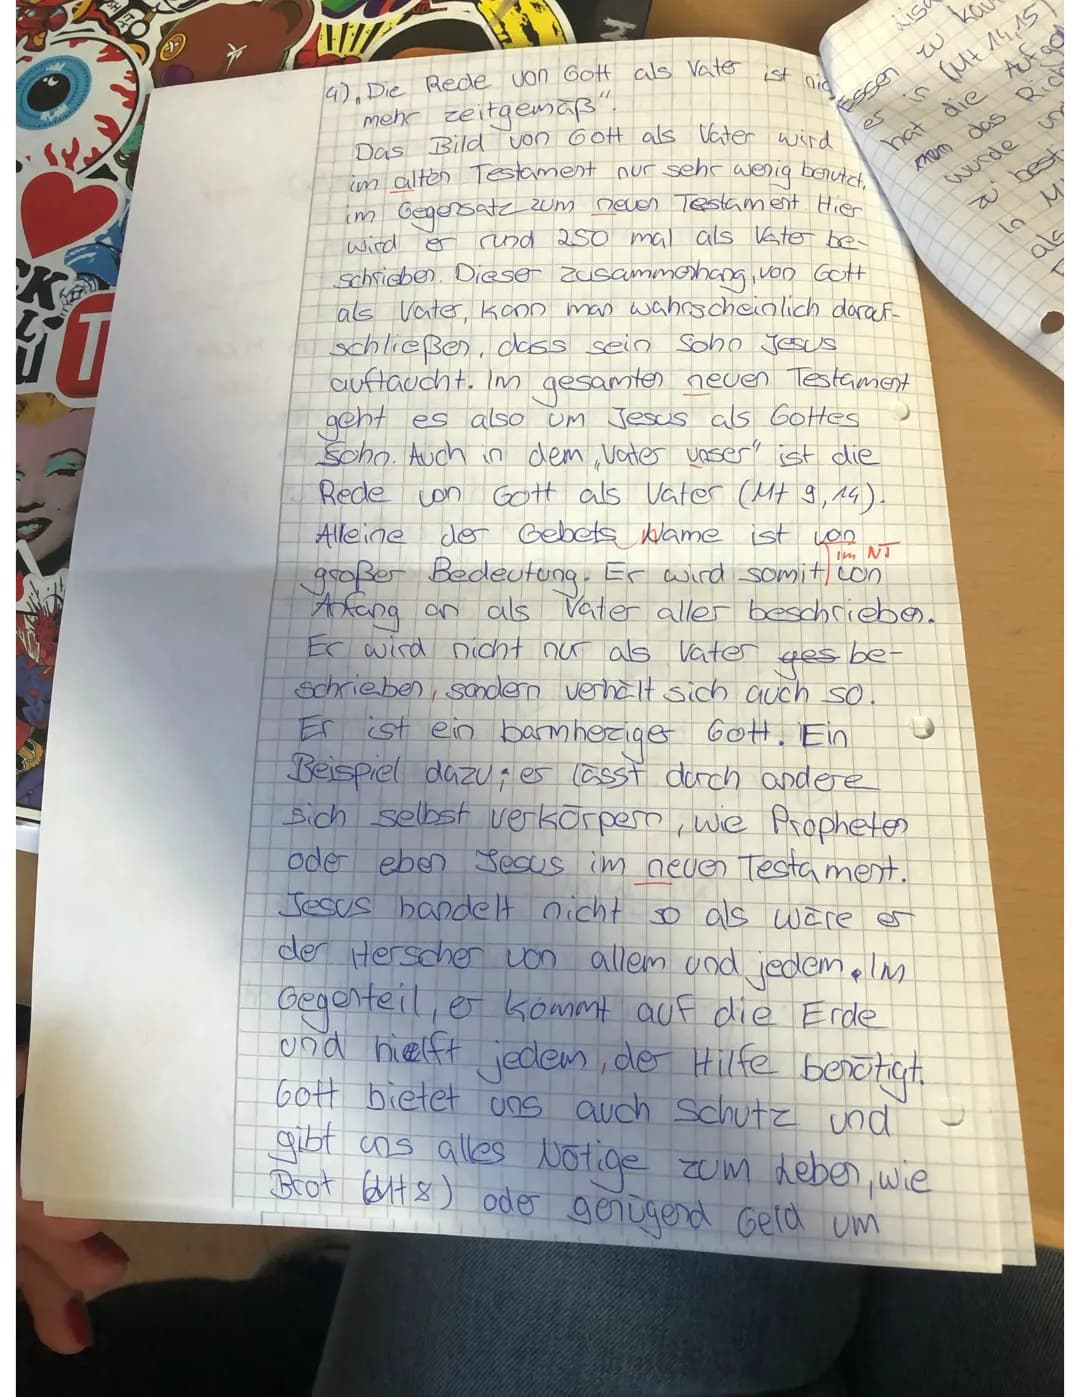 4) „Die Rede von Gott als Vater ist nic
mehr zeitgemäß".
Das Bild von Gott als Vater wird
im alten Testament nur sehr wenig benutzt,
im Gegensatz zum neuen Testament Hier
wird er rund 250 mal als Vater be-
schrieben. Dieser zusammenhang, von Gott
als Vater, kann man wahrscheinlich darauf-
schließen, dass sein Sohn Jesus
auftaucht. Im gesamten neuen Testament
geht es also um Jesus als Gottes
Sohn. Auch in dem „Vater unser" ist die
Rede von Gott als Vater (Mt 9,14).
Alleine der Gebets Name ist von
im NT
großer Bedeutung. Er wird somit von
Anfang an als Vater aller beschrieben.
Er wird nicht nur als Vater ges be-
schrieben, sondern verhält sich auch so.
Er ist ein barmherziger Gott. Ein
Beispiel dazu; er lässt durch andere
sich selbst verkörpern, wie Propheten
oder eben Jesus im neuen Testament.
Jesus handelt nicht so als wäre er
der Herscher von allem und jedem. Im
Gegenteil, er kommt auf die Erde
und hilft jedem, der Hilfe benötigt.
Gott bietet uns auch Schutz und
gibt uns alles Nötige zum Leben, wie
Brot (Mt 8) oder genügend Geld um
Essen zu kau
es in (Mt 14,15)
hat die Aufga
man das Rich
wurde un
zu best
in M
als